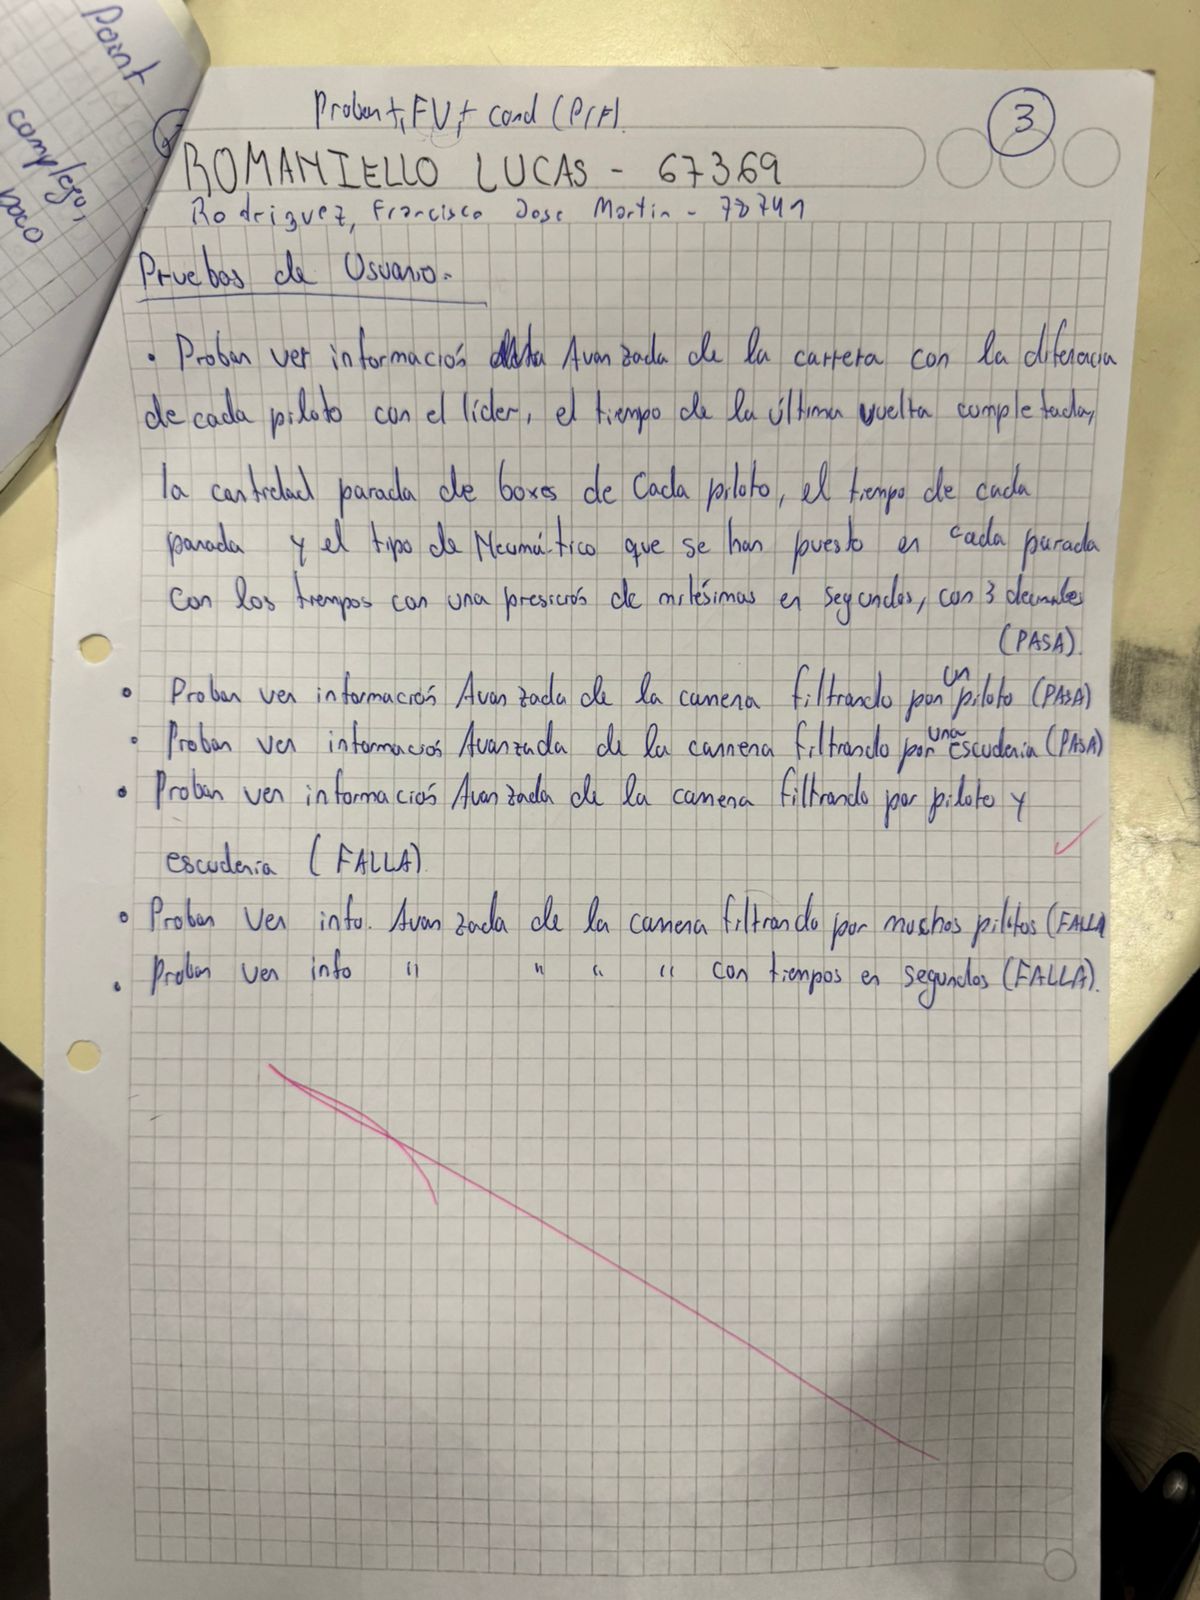 Point
complejo,
poco
Probar +, FV, + cond (P/F).
3
ROMANIELLO LUCAS - 67369
Rodriguez, Francisco Jose Martin - 78741
Pruebas de Usuario.
• Probar ver información Avanzada de la carrera con la diferencia
de cada piloto con el líder, el tiempo de la última vuelta completada,
la cantidad parada de boxes de Cada piloto, el tiempo de cada
parada y el tipo de Neumático que se han puesto en cada parada
Con los tiempos con una presición de milésimas en segundos, con 3 decimales
(PASA).
• Probar ver información Avanzada de la carrera filtrando por un piloto (PASA)
• Probar ver información Avanzada de la carrera filtrando por una escudería (PASA)
• Probar ver información Avanzada de la carrera filtrando por piloto y
escudería (FALLA)
• Probar Ver info. Avanzada de la carrera filtrando por muchos pilotos (FALLA
• Probar ver info " " " " con tiempos en segundos (FALLA).